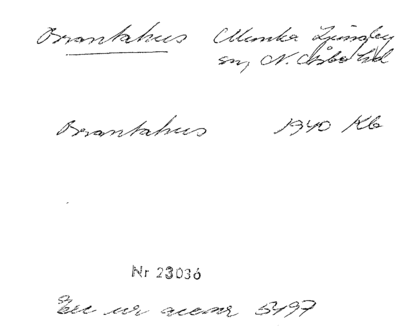 Brantahus Munka Ljungby
sn, N. Åsbo hd
Brantahus 1940 Kb
Nr 23036
5497